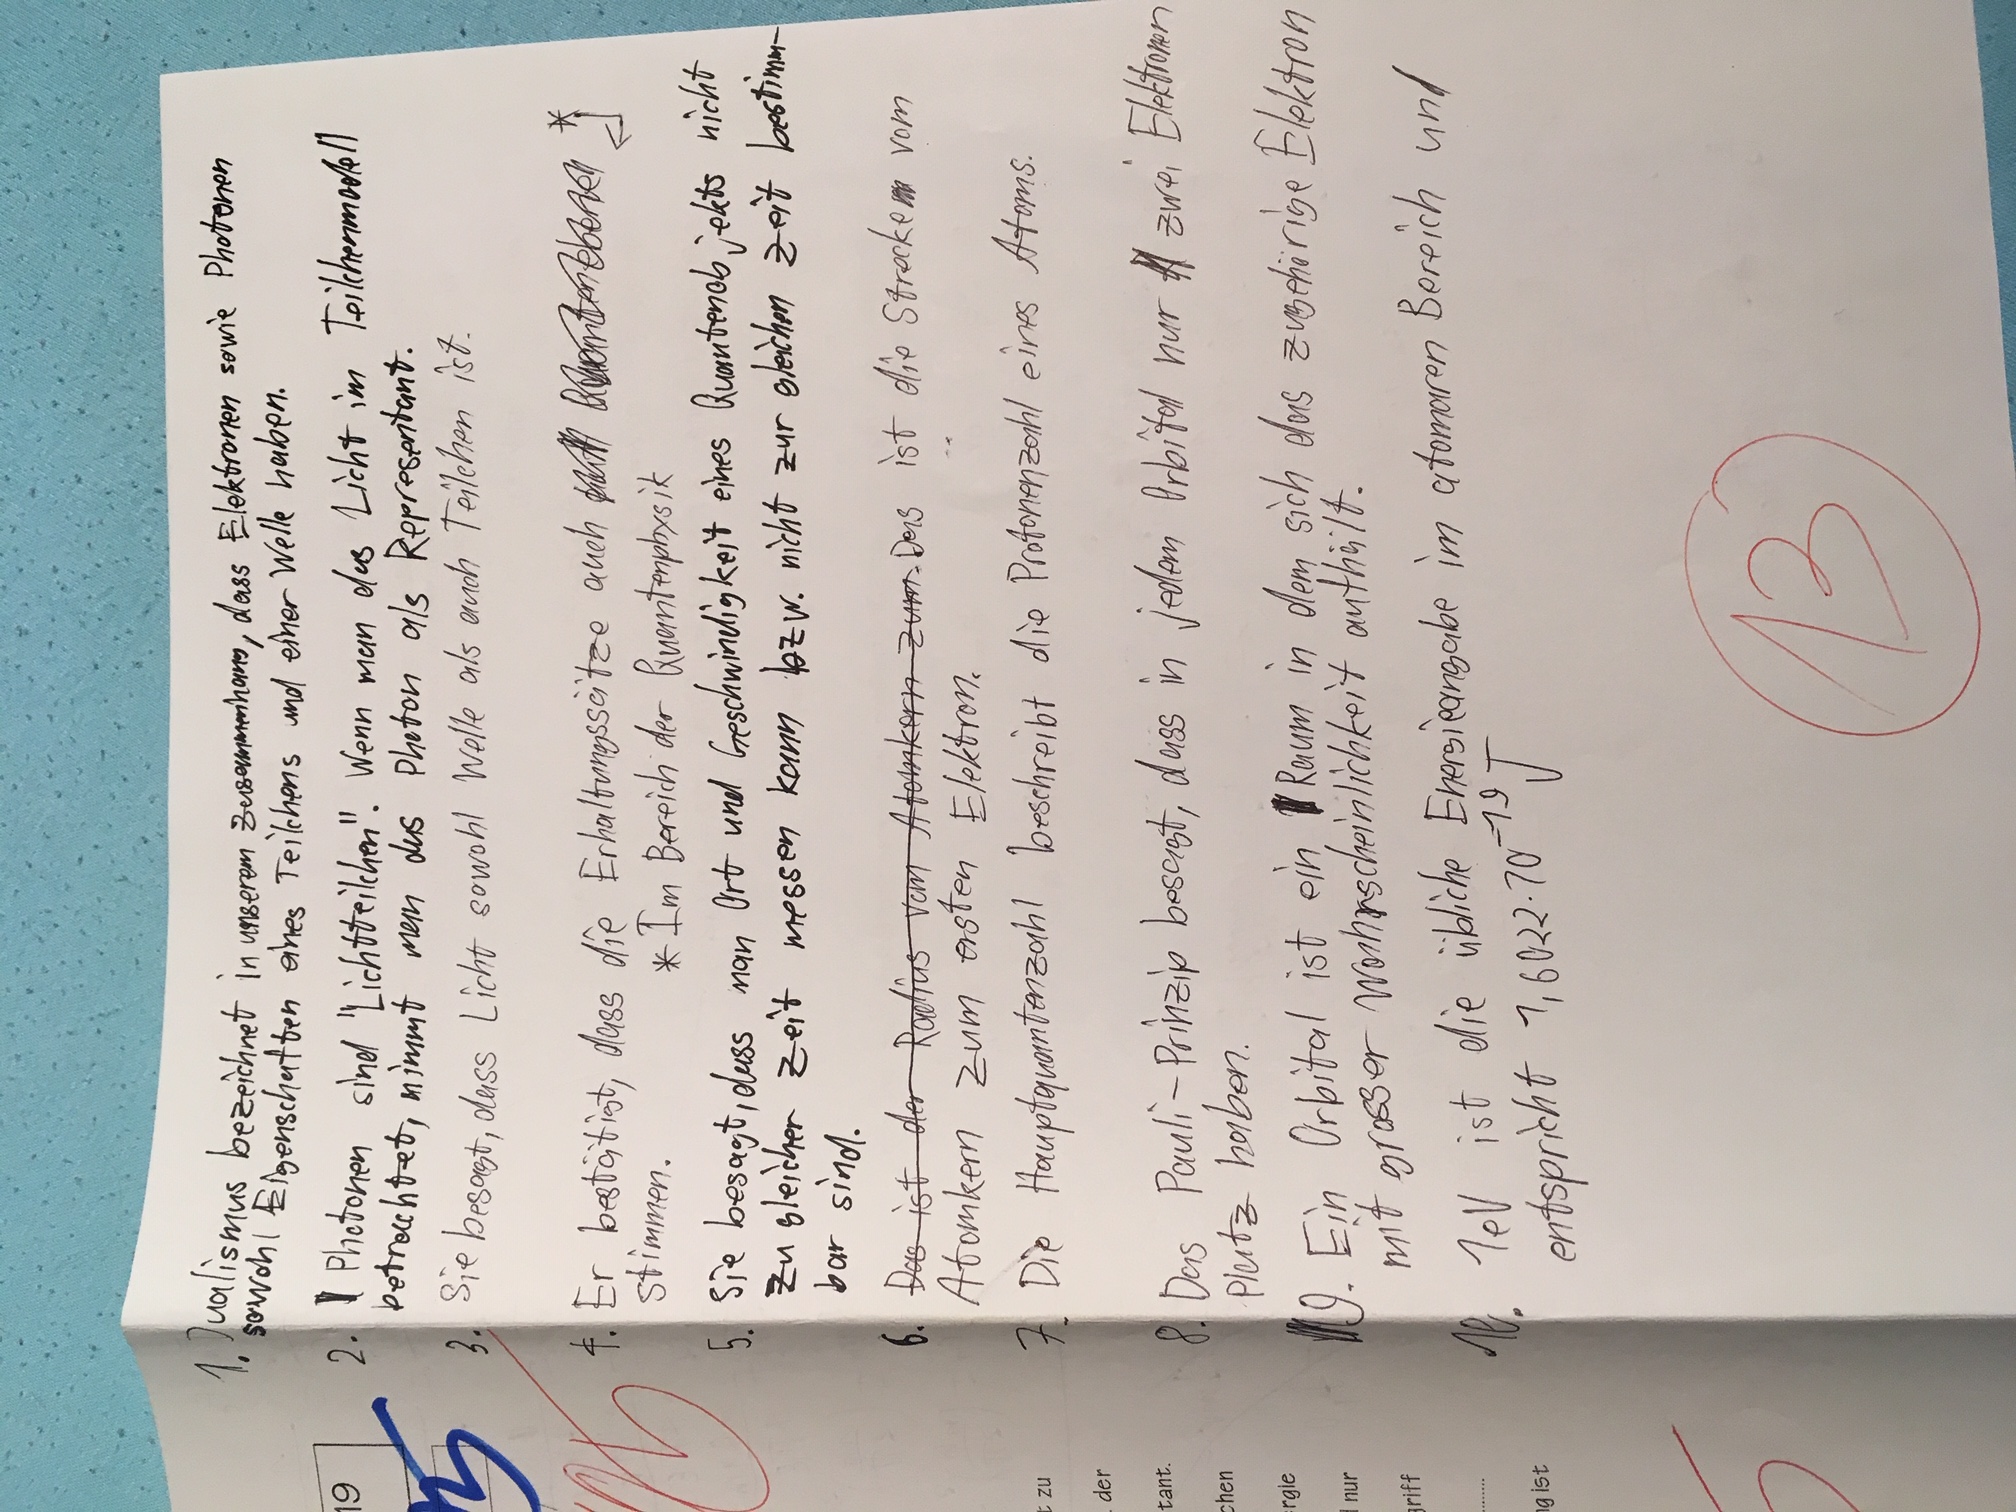 1. Dualismus bezeichnet in unserem Zusammenhang, dass Elektronen sowie Photonen
sowohl Eigenschaften eines Teilchens und einer Welle haben.
2. Photonen sind "Lichtteilchen". Wenn man das Licht im Teilchenmodell
betrachtet, nimmt man das Photon als Representant.
3. Sie besagt, dass Licht sowohl Welle als auch Teilchen ist.
4. Er bestätigt, dass die Erhaltungssätze auch Quantenebenen *
stimmen. * Im Bereich der Quantenphysik
5. Sie besagt, dass man Ort und Geschwindigkeit eines Quantenobjekts nicht
zu gleicher Zeit messen kann bzw. nicht zur gleichen Zeit bestimm-
bar sind.
6. Das ist der Radius vom Atomkern zum. Das ist die Strecke vom
Atomkern zum ersten Elektron.
7. Die Hauptquantenzahl beschreibt die Protonenzahl eines Atoms.
8. Das Pauli-Prinzip besagt, dass in jedem Orbital nur zwei Elektronen
Platz haben.
9. Ein Orbital ist ein Raum in dem sich das zugehörige Elektron
mit grosser Wahrscheinlichkeit aufhält.
10. 1eV ist die übliche Energieangabe im atomaren Bereich und
entspricht 1,6022·10⁻¹⁹ J
13
19
t zu
der
tant.
chen
rgie
nur
griff
ng ist